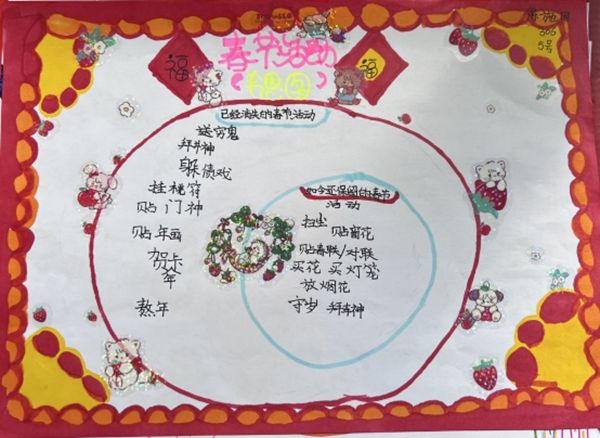 福
春节活动
福
5号
已经消失的春节活动
送穷鬼
拜井神
躲债戏
挂桃符
贴门神
贴年画
贺卡
年
熬年
如今还保留的春节
活动
扫尘
贴窗花
贴春联/对联
买花 买灯笼
放烟花
守岁